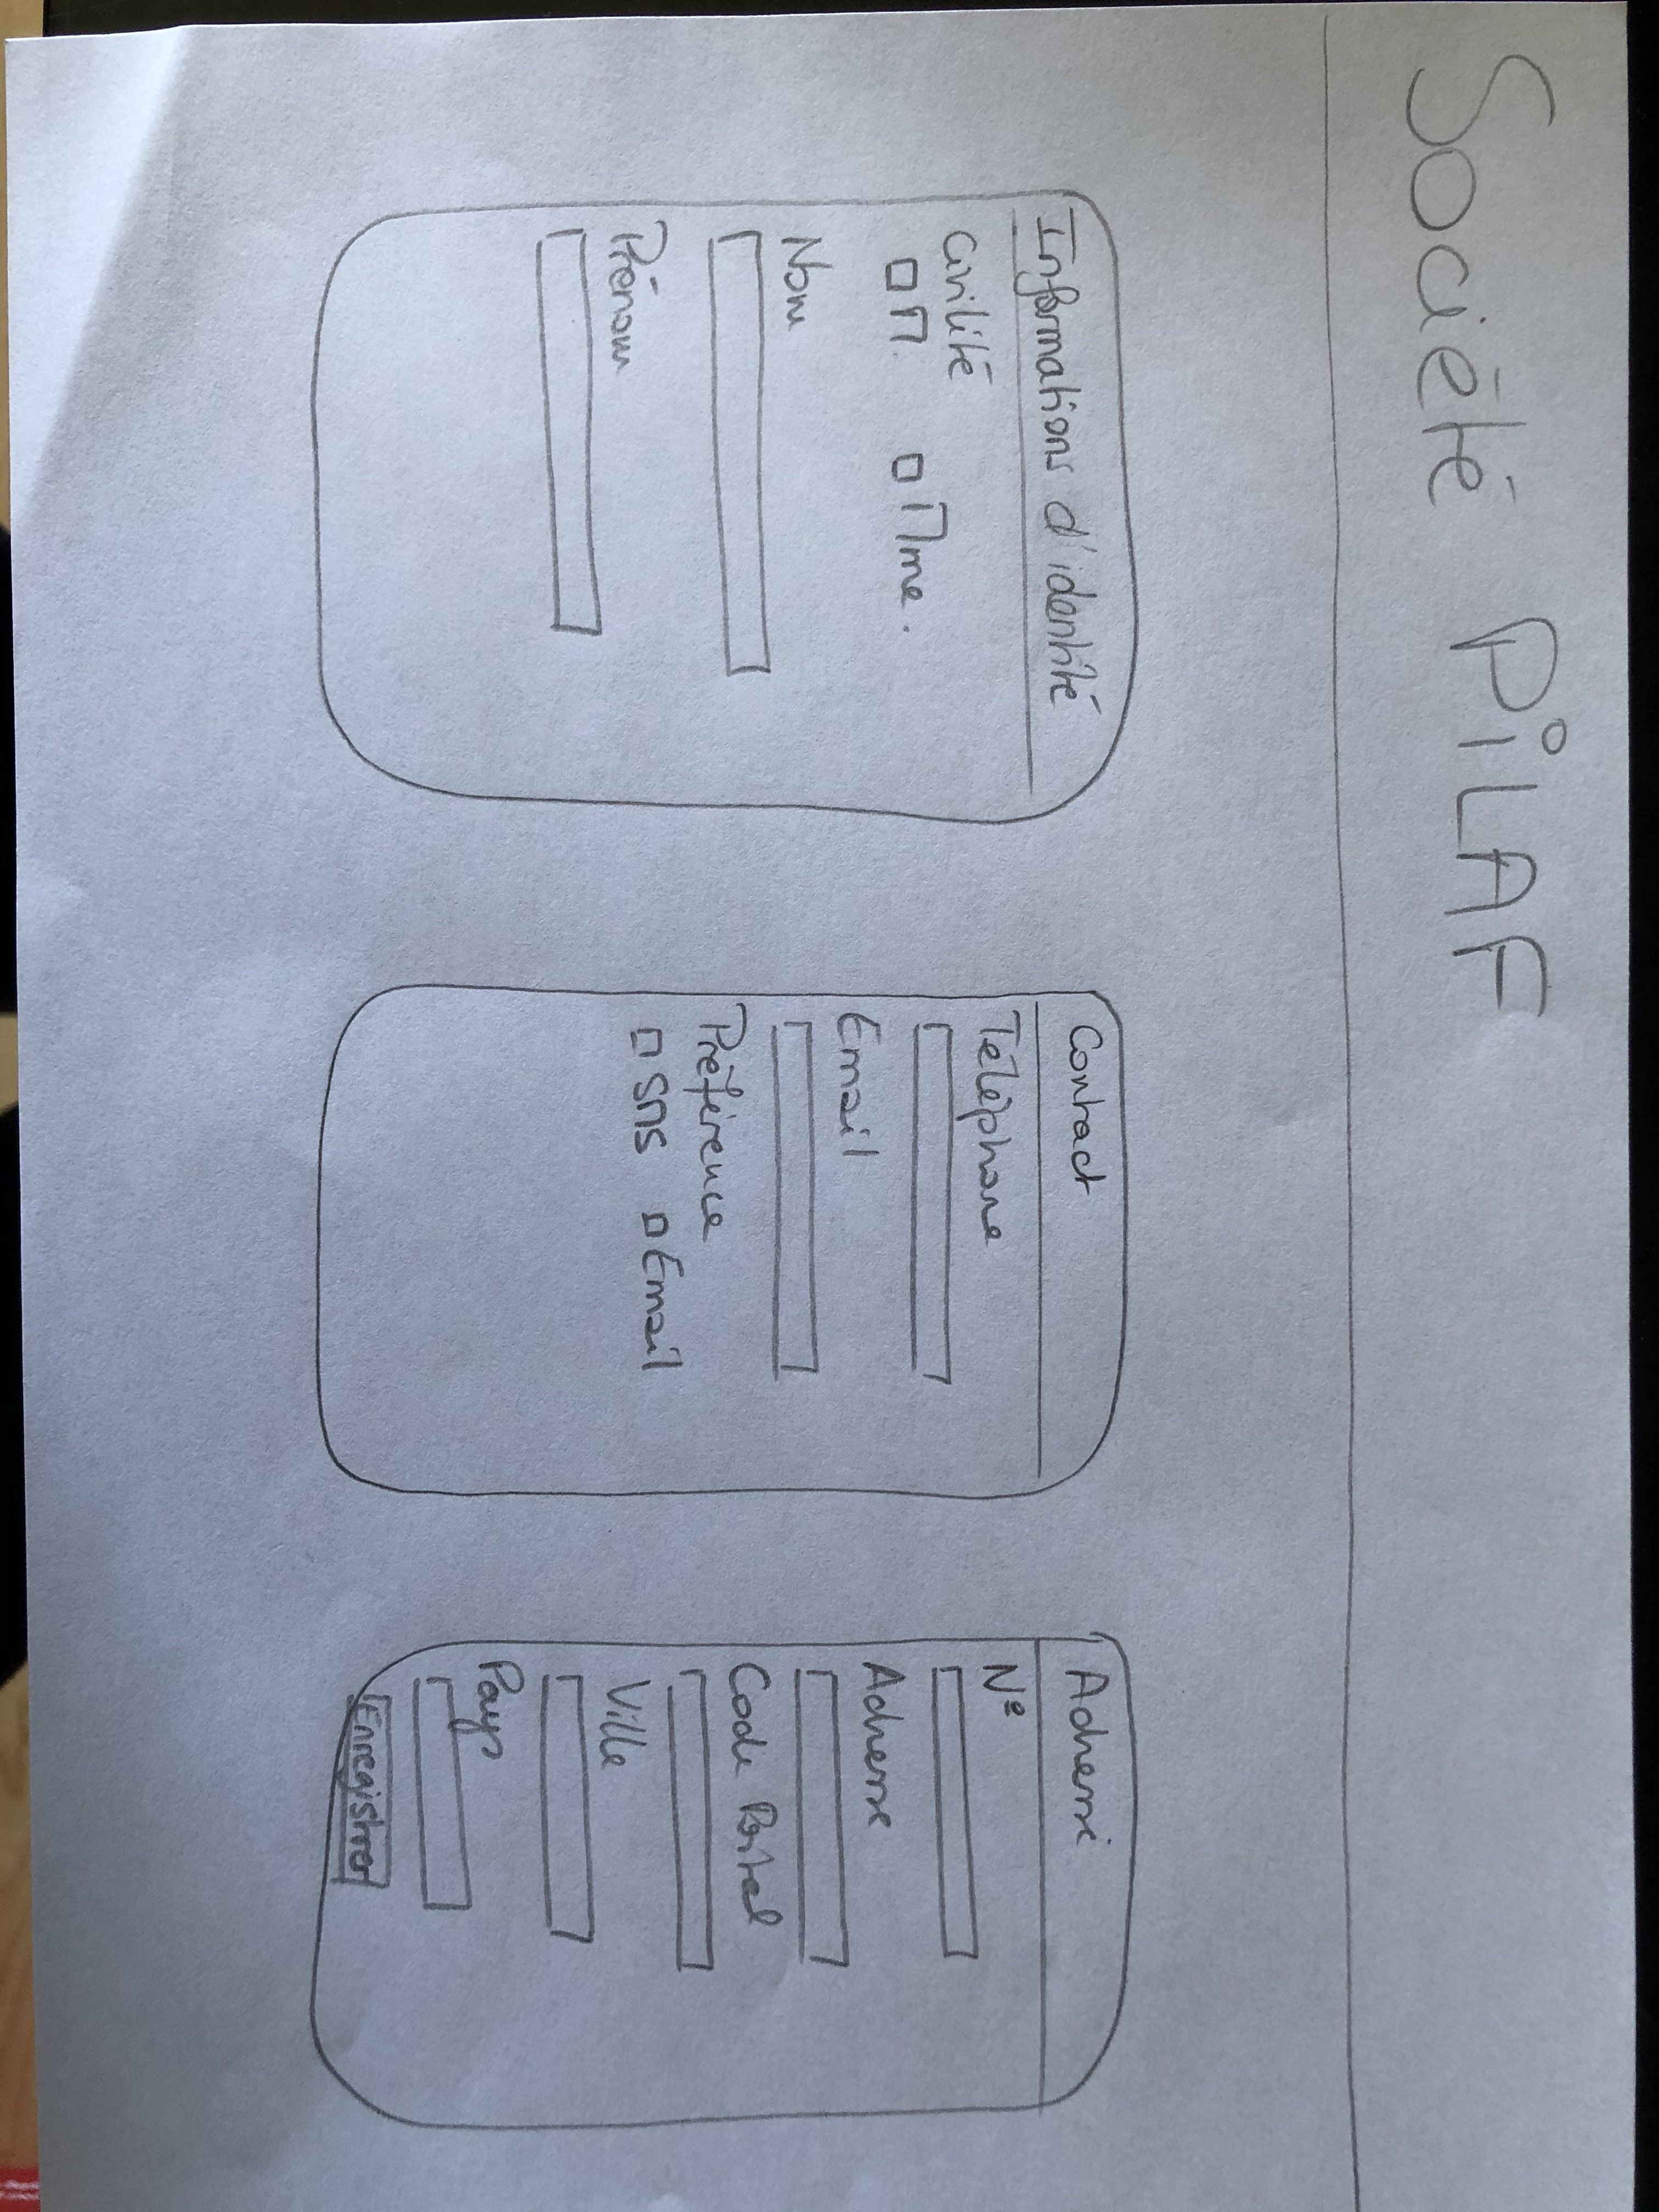 Société PiLAF
Informations d'identité
Civilité
M. Mme.
Nom
Prénom
Contact
Téléphone
Email
Préférence
SMS Email
Adresse
N°
Adresse
Code Postal
Ville
Pays
Enregistrer